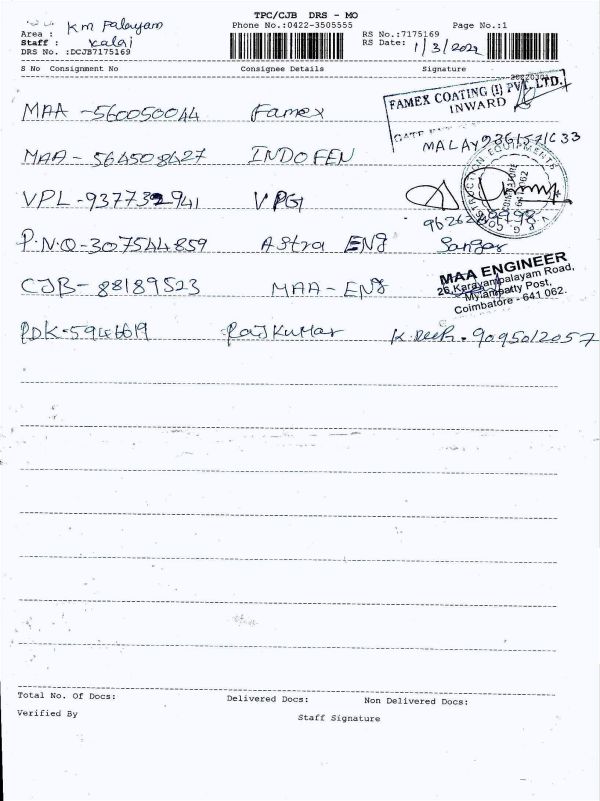 TPC/CJB DRS - MO
Area : KM Palayam
Phone No.:0422-3505555
Page No.:1
Staff : Kalai
RS No.:7175169
DRS No. :DCJB7175169
RS Date: 1/3/2022
S No Consignment No Consignee Details Signature
FAMEX COATING (I) PVT. LTD.
INWARD
MAA - 560050044 Famex
MALAY 9361571633
MAA - 564508427 INDOFEN
V.P.G. CONSTRUCTION EQUIPMENTS
VPL - 937732941 VPG
P.N.Q - 307544859 Astra ENG
CJB - 88189523 MAA - ENG
MAA ENGINEER
26, Karayampalayam Road,
Mylampatty Post,
Coimbatore - 641 062.
PDK - 5946619 RajKumar 9095012057
Total No. Of Docs: Delivered Docs: Non Delivered Docs:
Verified By Staff Signature